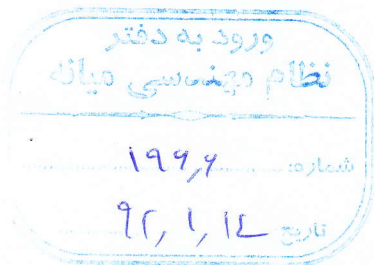 ورود به دفتر
نظام مهندسی میانه
شماره: ۱۹۹۶
تاریخ ۹۲/۱/۱۴